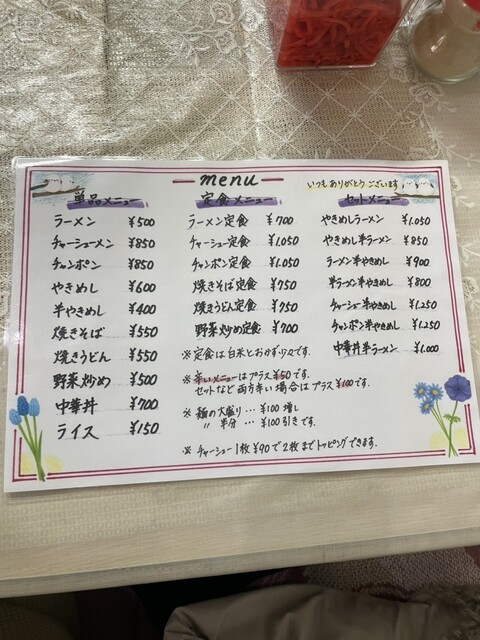 menu
いつもありがとうございます
単品メニュー
ラーメン ¥500
チャーシューメン ¥850
チャンポン ¥850
やきめし ¥600
半やきめし ¥400
焼きそば ¥550
焼きうどん ¥550
野菜炒め ¥500
中華丼 ¥700
ライス ¥150
定食メニュー
ラーメン定食 ¥700
チャーシュー定食 ¥1,050
チャンポン定食 ¥1,050
焼きそば定食 ¥750
焼きうどん定食 ¥750
野菜炒め定食 ¥700
※定食は白米とおかず少々です.
※辛いメニューはプラス¥50です.
セットなど両方辛い場合はプラス¥100です.
※麺の大盛り… ¥100増し
〃 半分 … ¥100引きです.
※チャーシュー1枚¥90で2枚までトッピングできます.
セットメニュー
やきめしラーメン ¥1,050
やきめし半ラーメン ¥850
ラーメン半やきめし ¥900
半ラーメン半やきめし ¥800
チャーシュー半やきめし ¥1,250
チャンポン半やきめし ¥1,250
中華丼半ラーメン ¥1,000